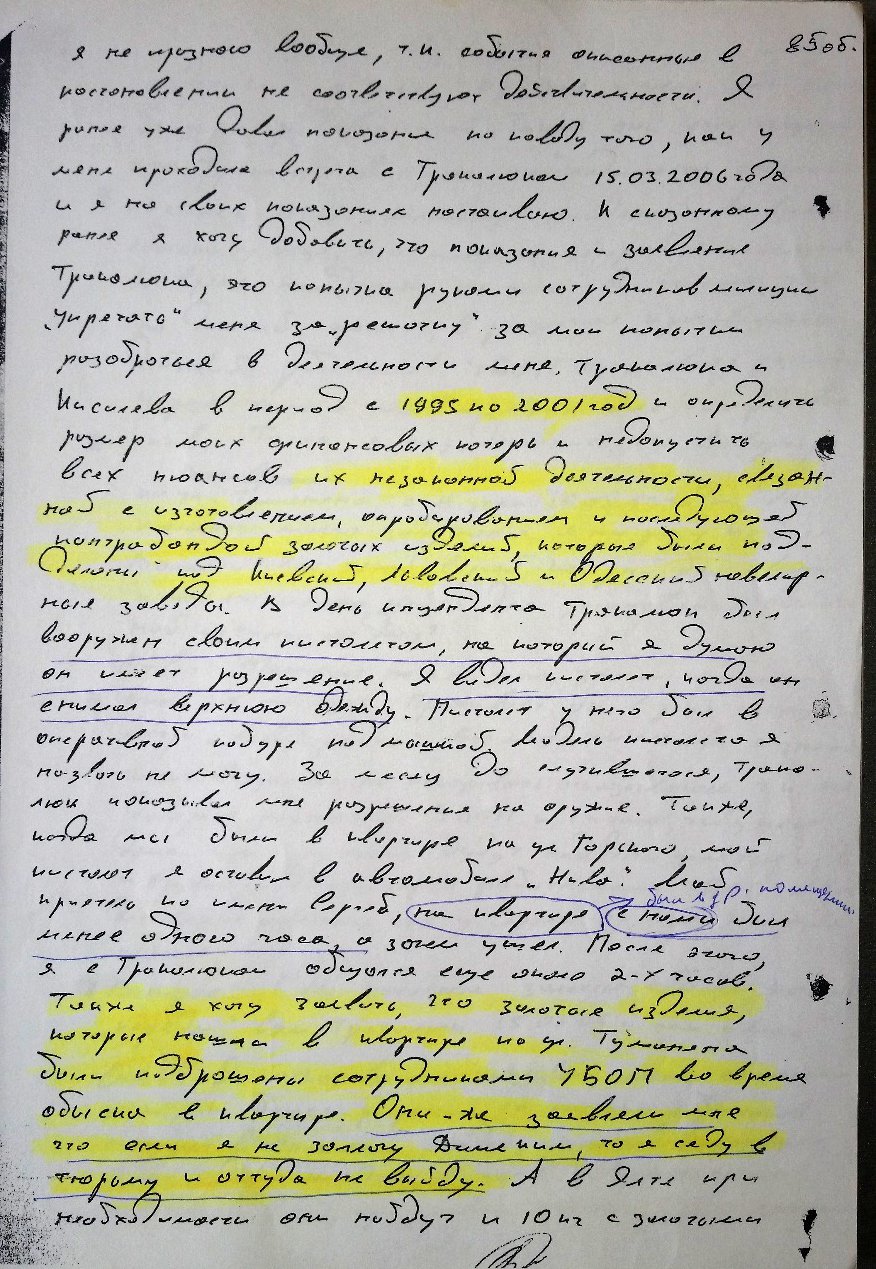 85об.
я не признаю вообще, т.к. события описанные в
постановлении не соответствуют действительности. Я
ранее уже давал показания по поводу того, как у
меня проходила встреча с Трикалюком 15.03.2006 года
и я на своих показаниях настаиваю. К сказанному
ранее я хочу добавить, что показания и заявление
это попытка руками сотрудников милиции
"упрятать" меня за "решотку" за мои попытки
разобраться в деятельности меня, и
Киселева в период с 1995 по 2001 год и определить
размер моих финансовых потерь и недопустить
всех нюансов их незаконной деятельности, связан-
ной с изготовлением, опробированием и последующей
контрабандой золотых изделий, которые были под-
деланы под Киевский, Львовский и Одесский ювелир-
ные заводы. В день инцендента был
вооружен своим пистолетом, на который я думаю
он имеет розрешение. Я видел пистолет, когда он
снимал верхнюю одежду. Пистолет у него был в
оперативной кобуре подмышкой. Модель пистолета я
назвать не могу. За месяц до случившегося,
показывал мне розрешения на оружие. Также,
когда мы были в квартире на ул. Горького, мой
пистолет я оставил в автомобиле "Нива". Мой
были в др. помещении
приятель по имени Сергей, на квартире с нами был
менее одного часа, а затем ушел. После этого,
я с общался еще около 2-х часов.
Также я хочу заявить, что золотые изделия,
которые нашли в квартире по ул. Туманяна
были подброшены сотрудниками УБОП во время
обыска в квартире. Они-же заявляли мне
что если я не заплачу Дименким, то я сяду в
тюрьму и оттуда не выйду. А в Ялте при
необходимости они найдут и 10 кг с золотыми